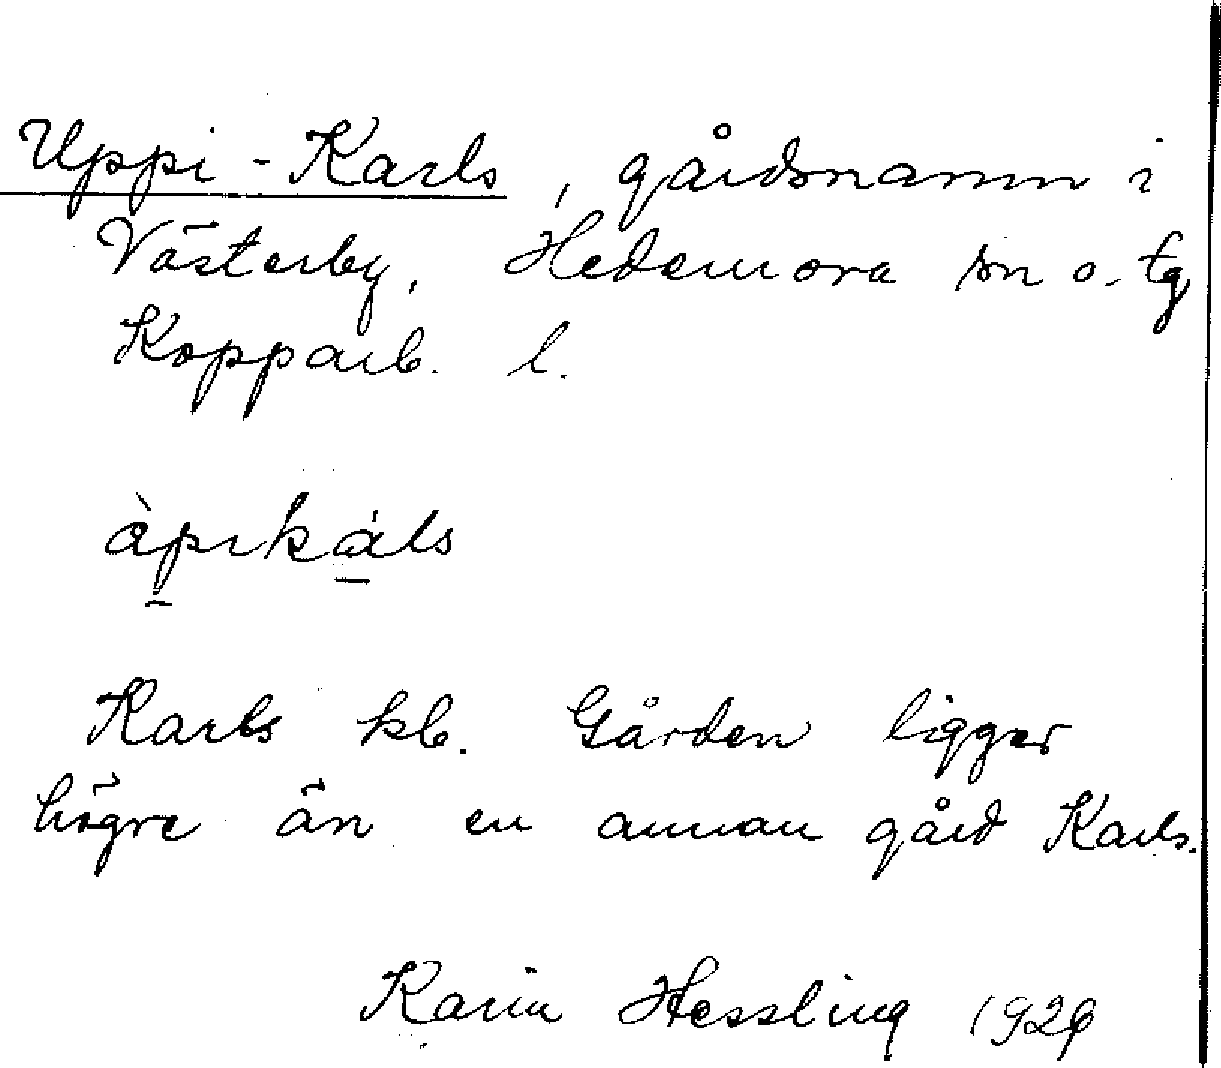 Uppi-Karls, gårdsnamn i
Västerby, Hedemora sn o. tg
Kopparb. l.
àpɩkáls
Karls kb. Gården ligger
högre än en annan gård Karls.
Karin Hessling 1929